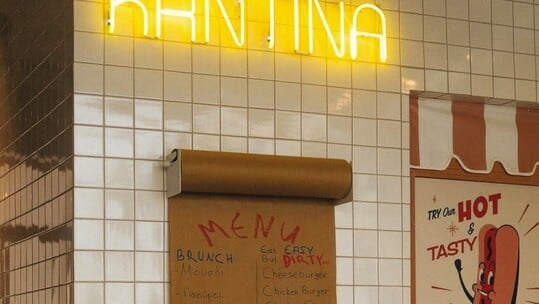 KANTINA
MENU
BRUNCH
Eat EASY
But DIRTY...
Cheeseburger
Chicken Burger
TRY Our HOT
&
TASTY